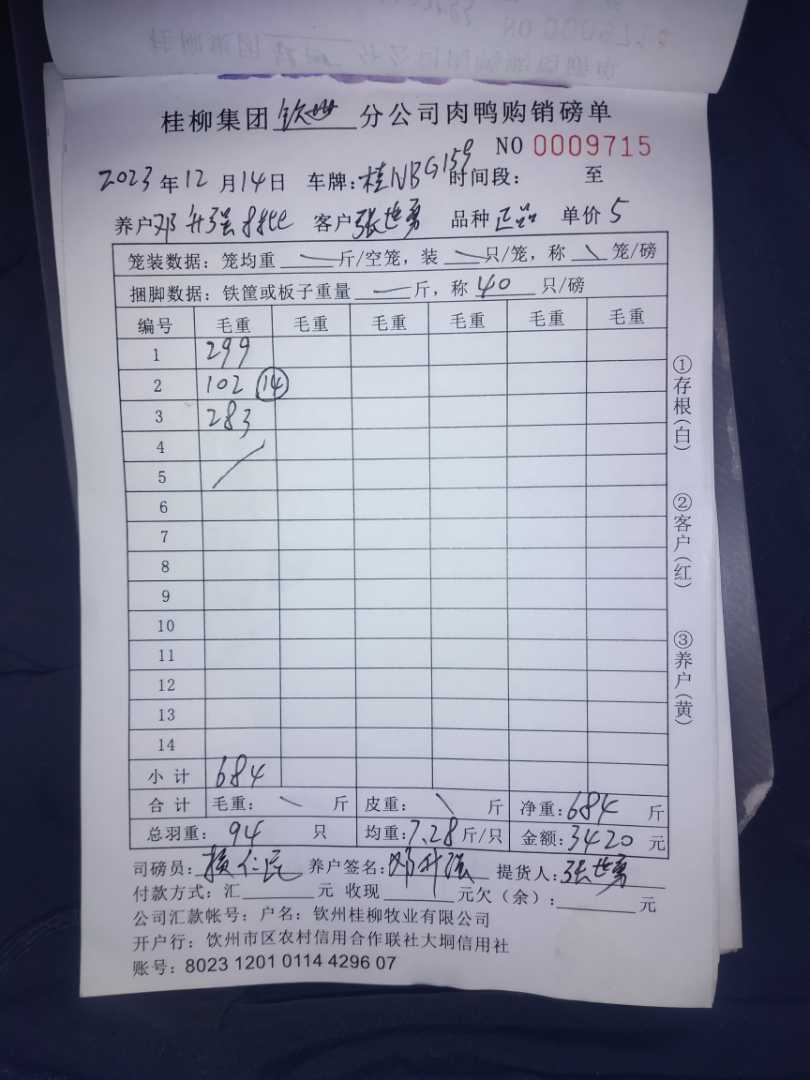 桂柳集团 钦州 分公司肉鸭购销磅单
NO 0009715
2023年12月14日 车牌:桂NBG159 时间段: 至
养户 邓升强 客户 张世勇 品种 正品 单价 5
笼装数据: 笼均重 斤/空笼, 装 只/笼, 称 笼/磅
捆脚数据: 铁筐或板子重量 斤, 称 40 只/磅
编号 毛重 毛重 毛重 毛重 毛重 毛重
1 299
2 102 14
3 283
4
5
6
7
8
9
10
11
12
13
14
小计 684
合计 毛重: 斤 皮重: 斤 净重:684 斤
总羽重: 94 只 均重:7.28斤/只 金额:3420元
司磅员: 仁民 养户签名:邓升强 提货人:张世勇
付款方式: 汇 元 收现 元欠(余): 元
公司汇款帐号: 户名: 钦州桂柳牧业有限公司
开户行: 饮州市区农村信用合作联社大垌信用社
账号: 8023 1201 0114 4296 07
①存根(白)
②客户(红)
③养户(黄)